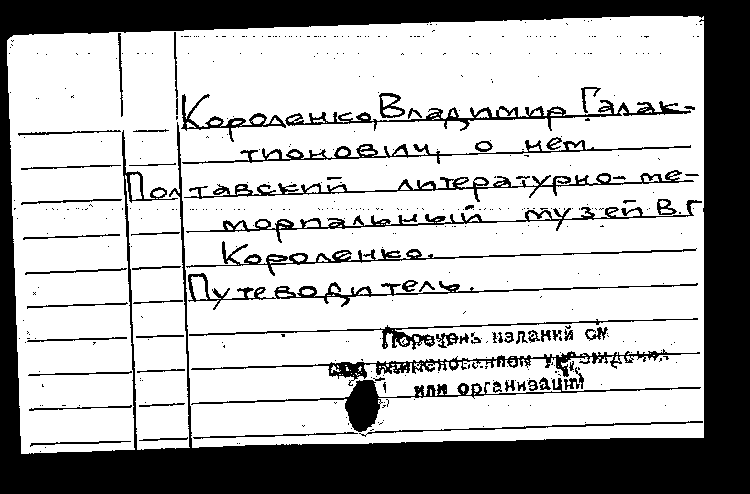 Короленко, Владимир Галак-
тионович, о нем.
Полтавский литературно-ме-
мориальный музей В.Г.
Короленко.
Путеводитель.
Перечень изданий см
под наименованием учреждения
или организации